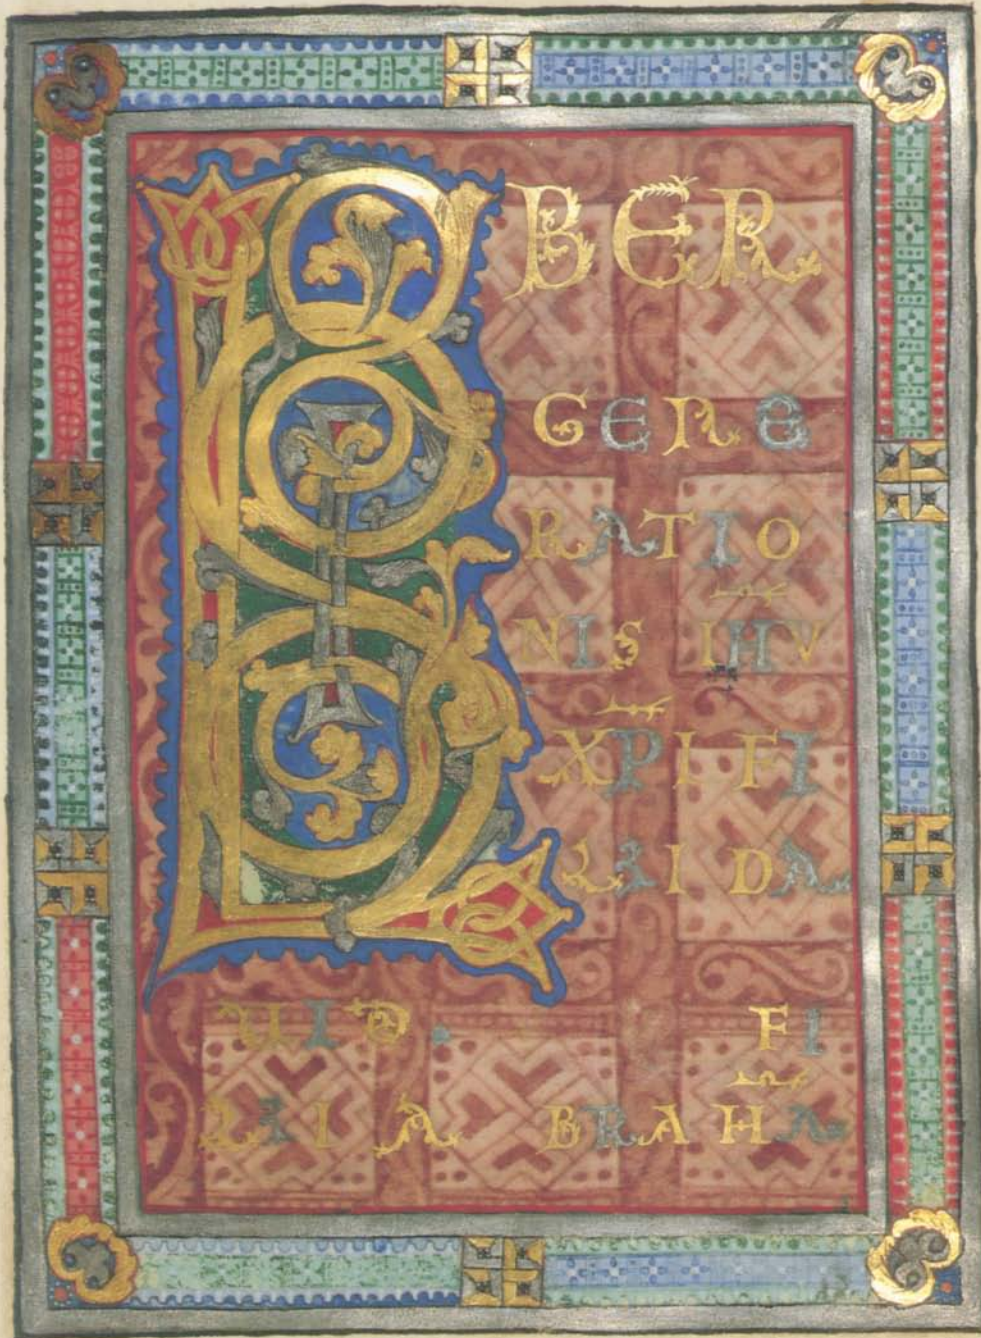 LIBER
GENE
RATIO
NIS IHV
XPI FI
LII DA
UID. FI
LII ABRAHA